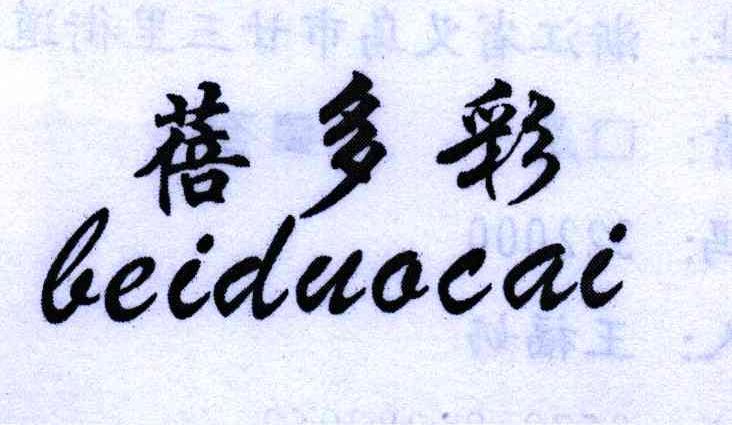 蓓多彩
beiduocai